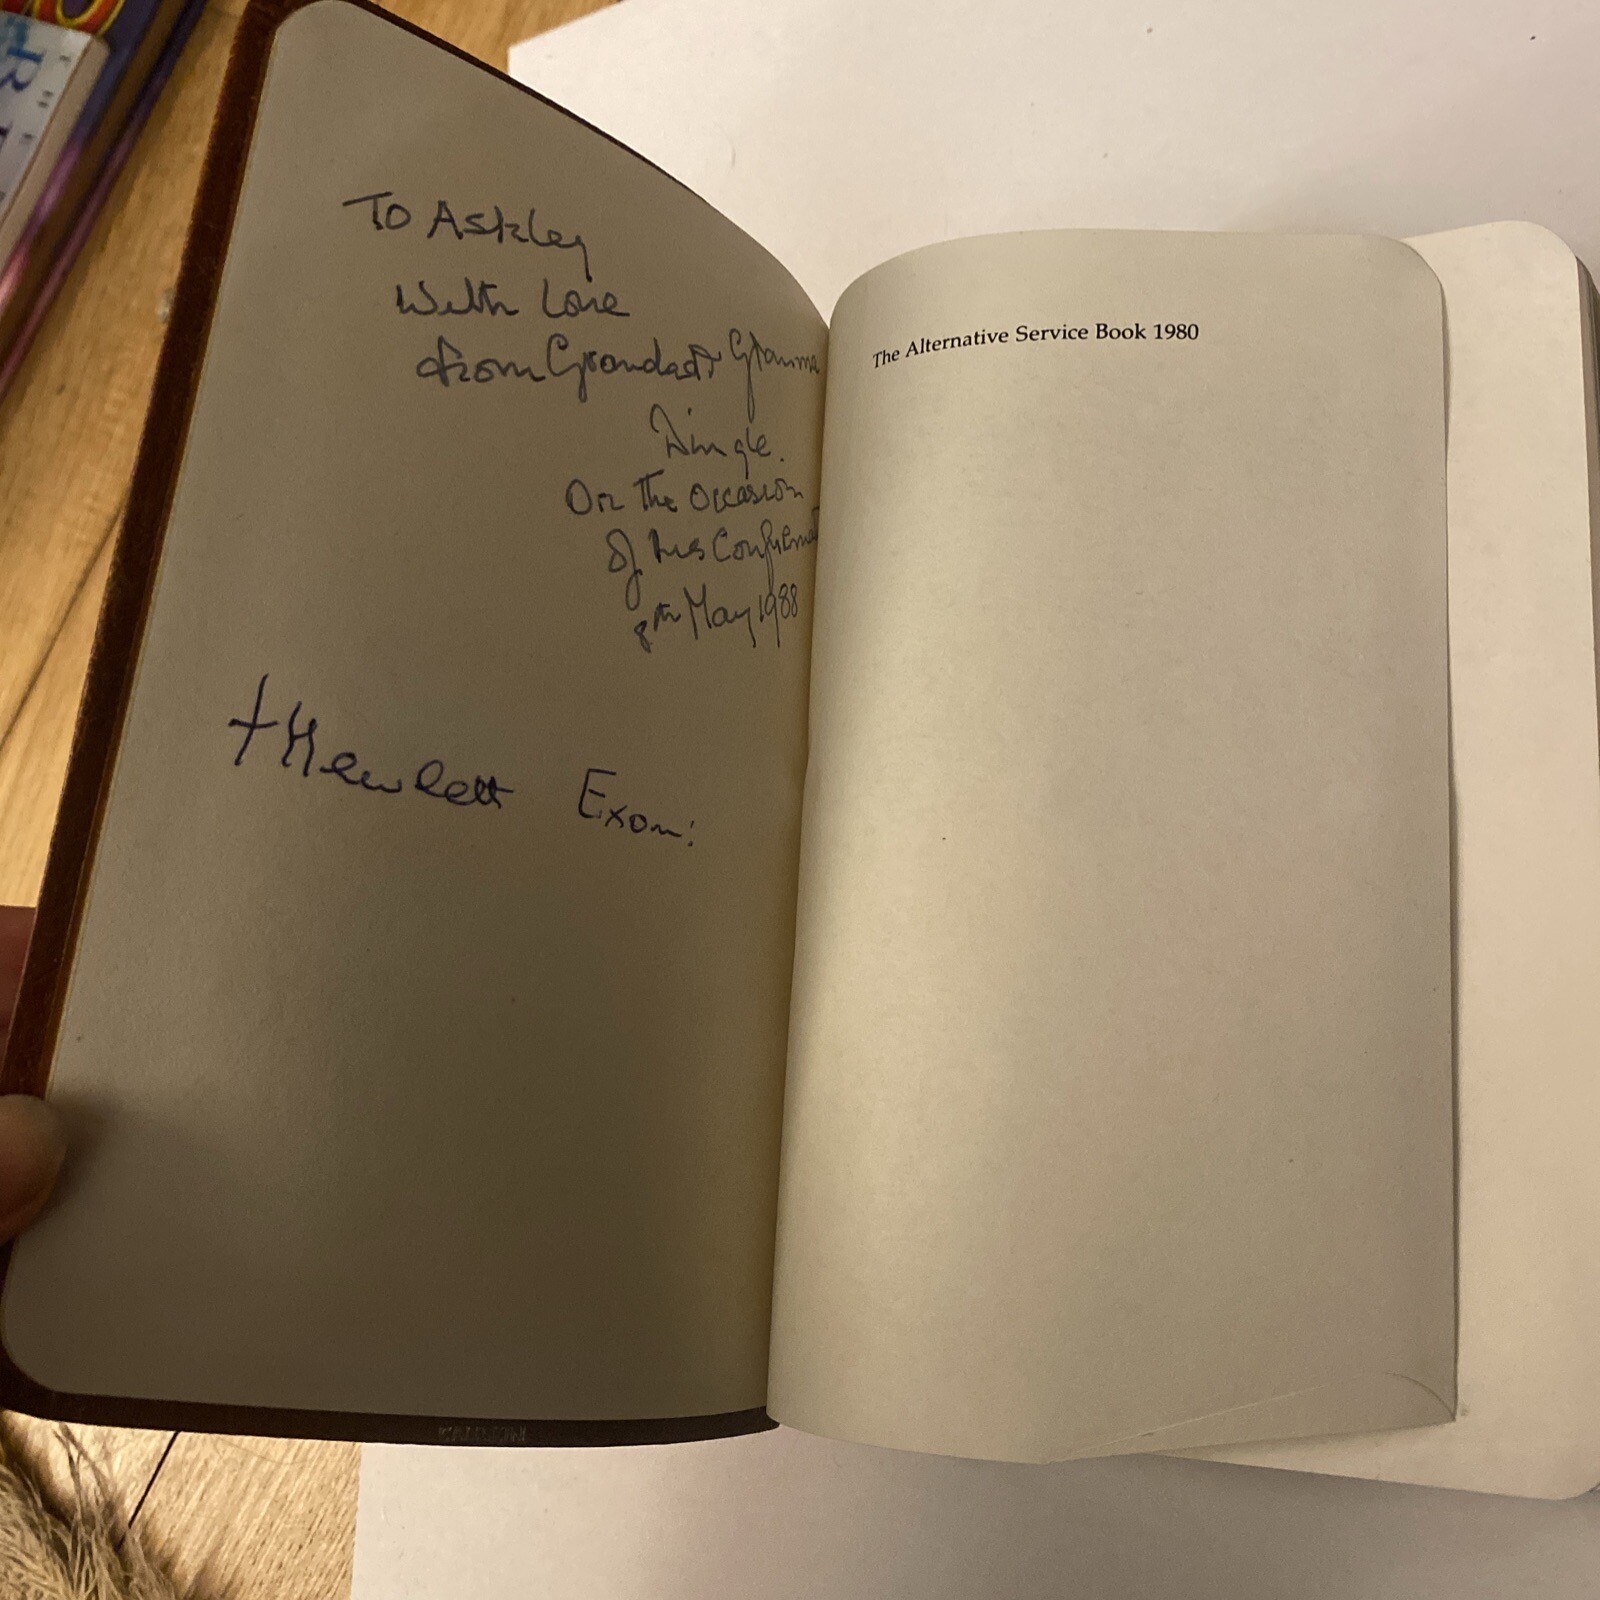 To Ashley
With Love
from Grandad & Gramma
Dingle.
On the Occasion
of his Confirmat
8th May 1988
+Hewlett Exon:
The Alternative Service Book 1980